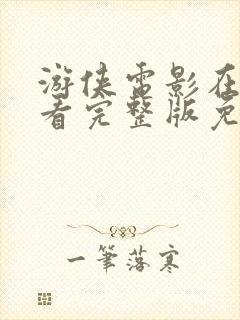 游侠电影在
看完整版免
一筆落寒